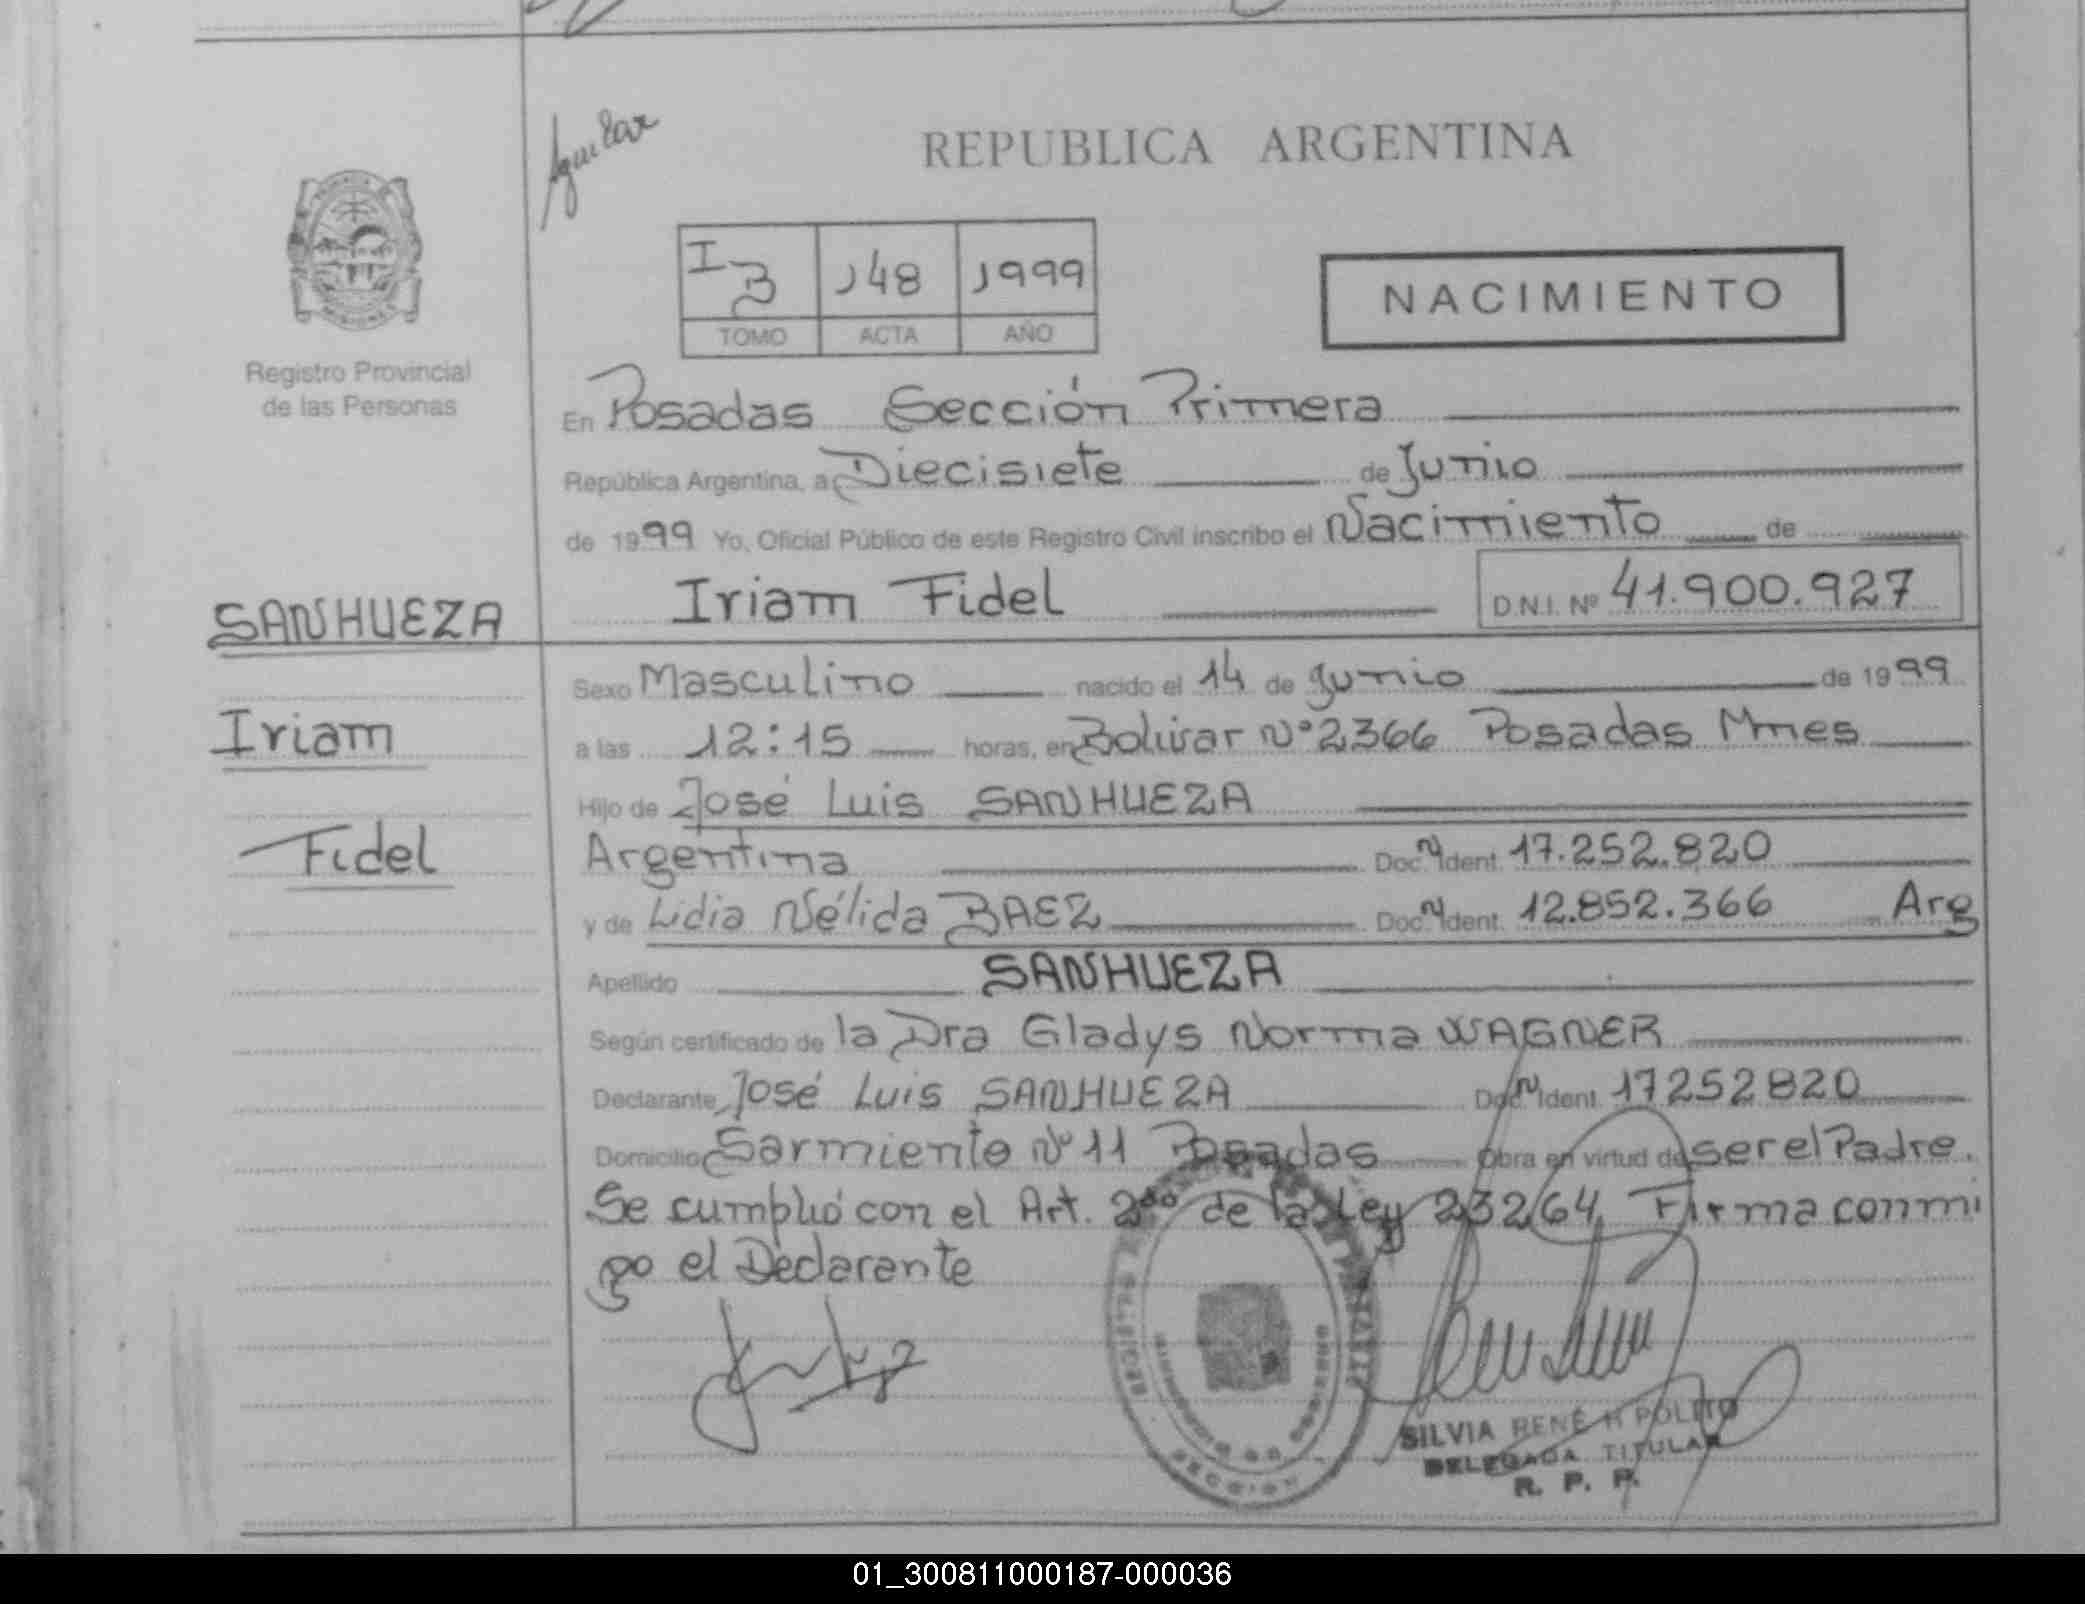 Aguilar
REPUBLICA ARGENTINA
I B 148 1999
TOMO ACTA AÑO
NACIMIENTO
Registro Provincial
de las Personas
En Posadas Sección Primera
República Argentina, a Diecisiete de Junio
de 1999 Yo, Oficial Público de este Registro Civil inscribo el Nacimiento de
Iriam Fidel D.N.I. Nº 41.900.927
SANHUEZA
Iriam
Fidel
Sexo Masculino nacido el 14 de Junio de 1999
a las 12:15 horas, en Bolivar Nº 2366 Posadas Mnes
Hijo de José Luis SANHUEZA
Argentina Doc. N Ident. 17.252.820
y de Lidia Nélida BAEZ Doc. N Ident. 12.852.366 Arg
Apellido SANHUEZA
Según certificado de la Dra Gladys Norma WAGNER
Declarante José Luis SANHUEZA Doc. N Ident. 17252820
Domicilio Sarmiento Nº 11 Posadas Obra en virtud de ser el Padre.
Se cumplió con el Art. 2do de la Ley 23264 Firma conmi
go el Declarante
SILVIA RENÉ HIPOLITO
DELEGADA TITULAR
R. P. P.
01_300811000187-000036